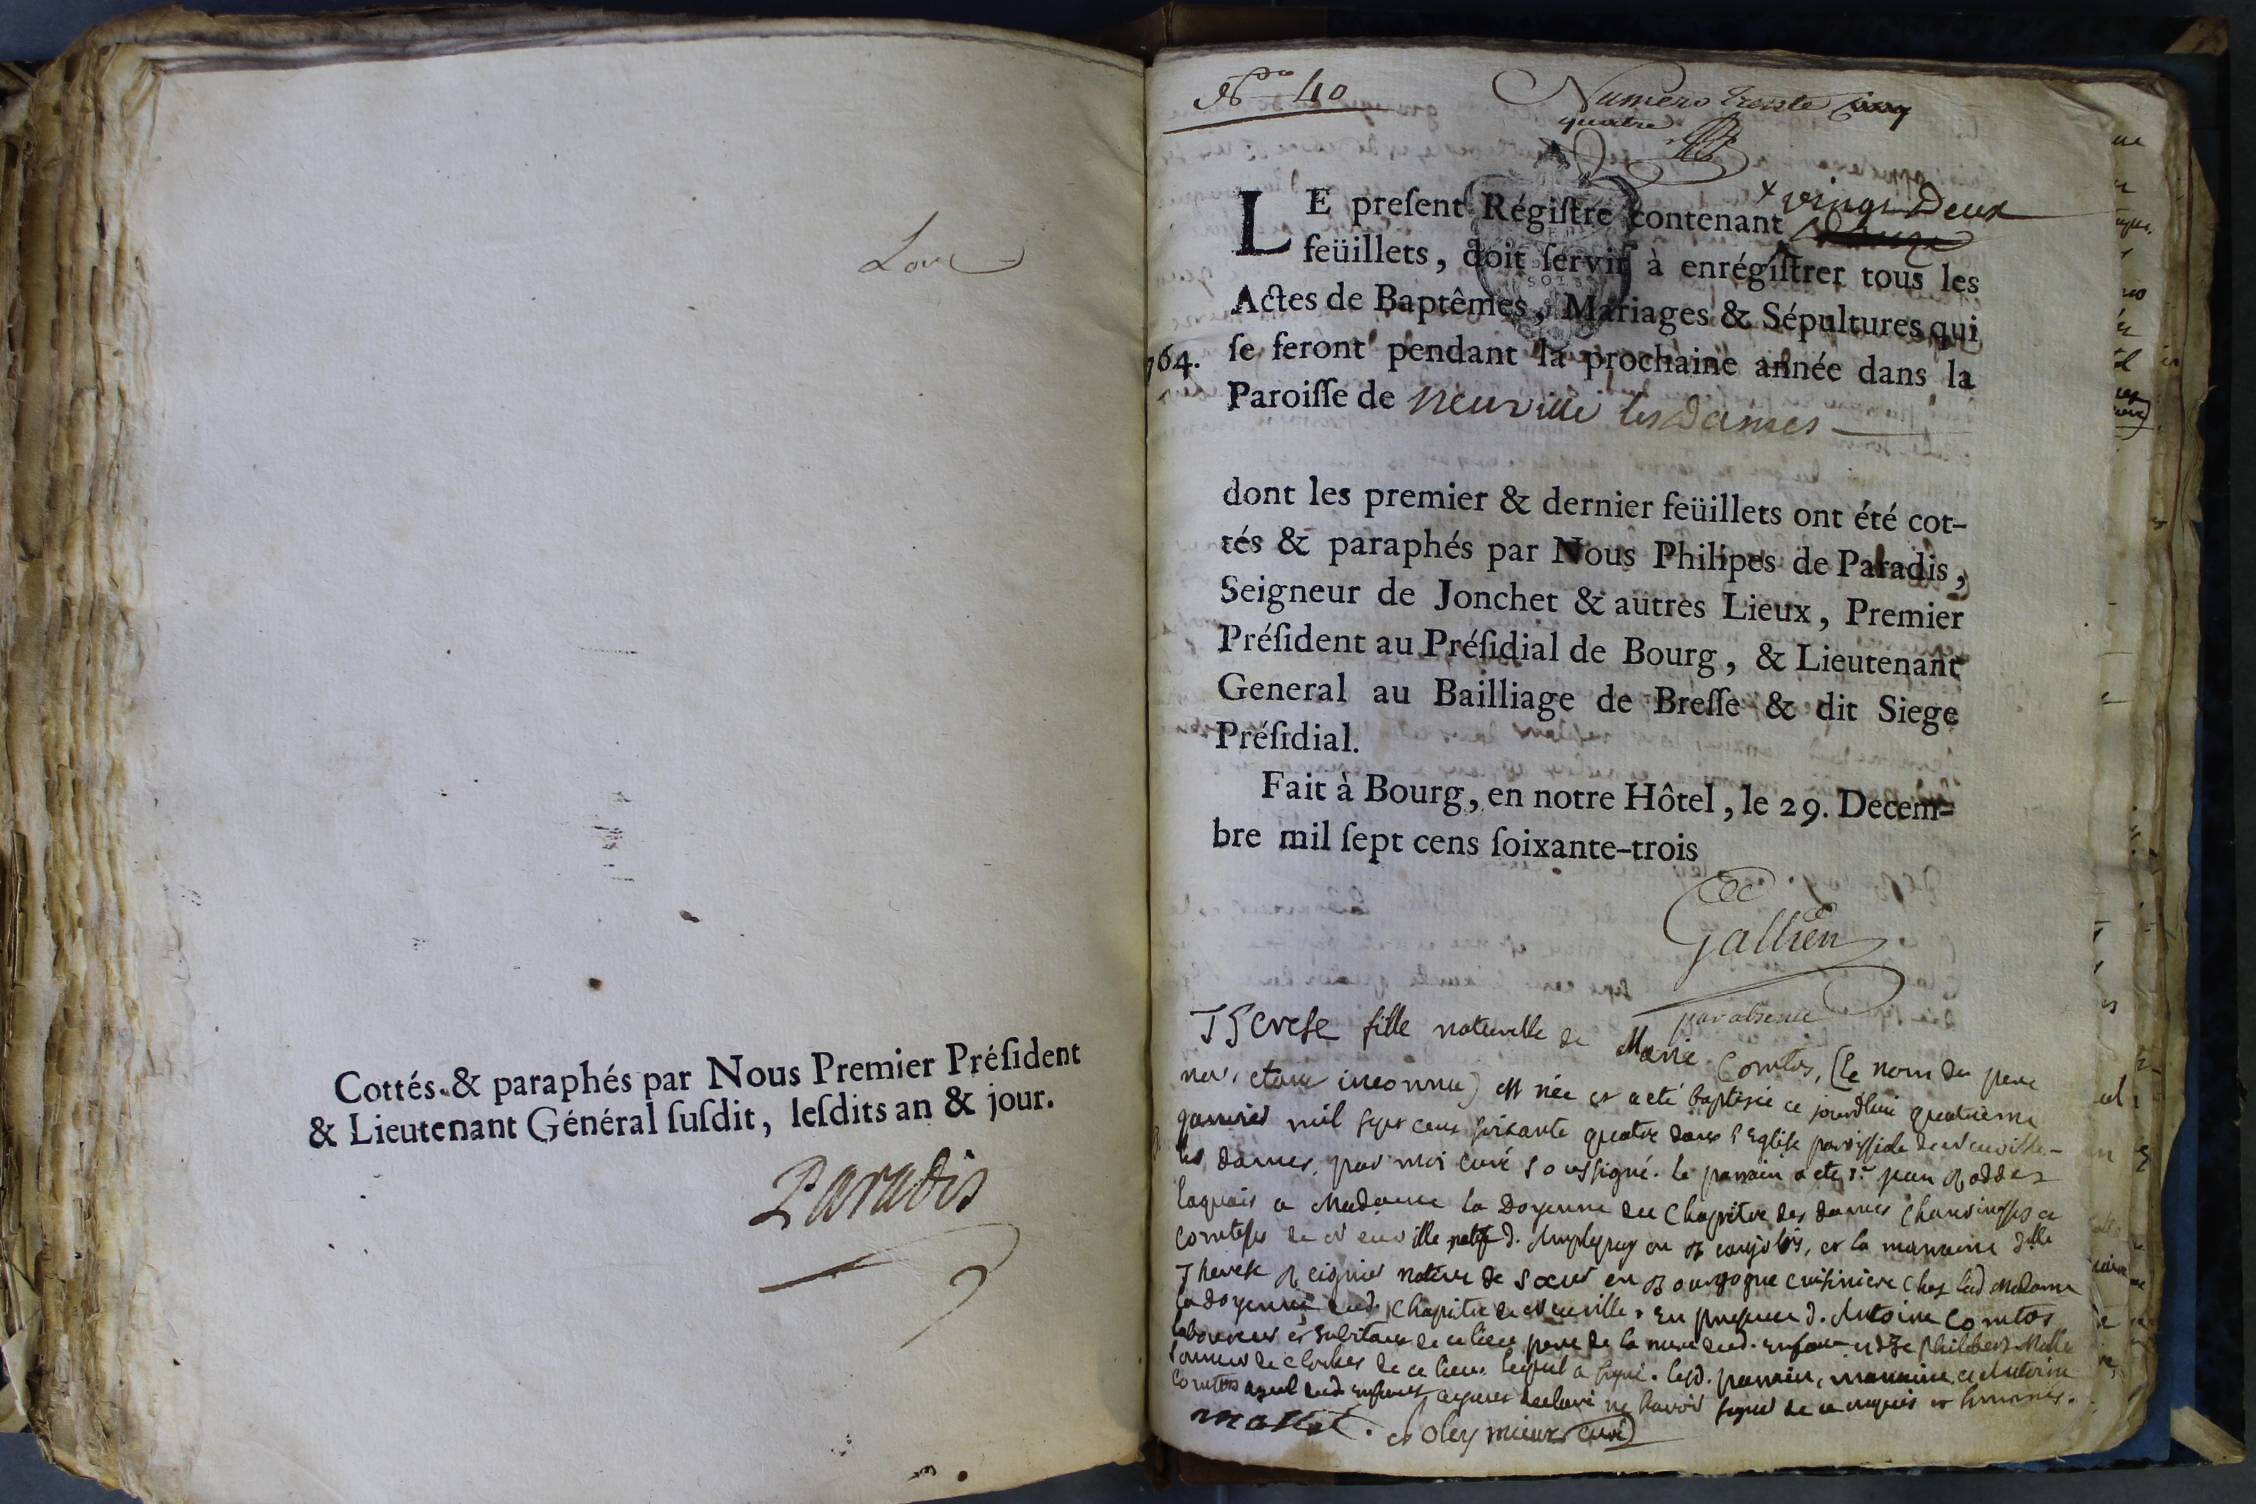 Cottés & paraphés par Nous Premier Préſident
& Lieutenant Général ſuſdit, leſdits an & jour.
Paradis
No 40
Numero trente cinq
quatre
x vingt Deux
LE preſent Régiſtre contenant
feüillets, doit ſervir à enrégiſtrer tous les
Actes de Baptêmes, Mariages & Sépultures qui
764. ſe feront pendant la prochaine année dans la
Paroiſſe de Neuville les Dames
dont les premier & dernier feüillets ont été cot-
tés & paraphés par Nous Philipes de Paradis,
Seigneur de Jonchet & autres Lieux, Premier
Préſident au Préſidial de Bourg, & Lieutenant
General au Bailliage de Breſſe & dit Siege
Préſidial.
Fait à Bourg, en notre Hôtel, le 29. Decem-
bre mil ſept cens ſoixante-trois
Gallien
par absence
Therese fille naturelle de Marie Comtos, (le nom du pere
inconnu) est née et a eté baptisée ce jourdhui quatrieme
janvier mil sept cens soixante quatre dans l'Eglise paroissiale de Neuville-
les dames, par moi curé soussigné. le parrain a eté sr. jean
laquais a Madame la Doyenne du Chapitre des dames chanoinesses
comtesses de Neuville natif d. en Beaujolois, et la marraine dlle
Therese native de en Bourgogne cuisiniere chez lad Madame
la doyenne dud. Chapitre de Neuville. En presence d. Antoine Comtos
laboureur et habitant de ce lieu pere de la mere dud. enfant et de Philibert
sonneur de cloches de ce lieu lequel a signé. lesd. parrain, marraine et Antoine
Comtos ayeul dud enfant ayant declaré ne savoir signer de ce enquis et sommés.
curé